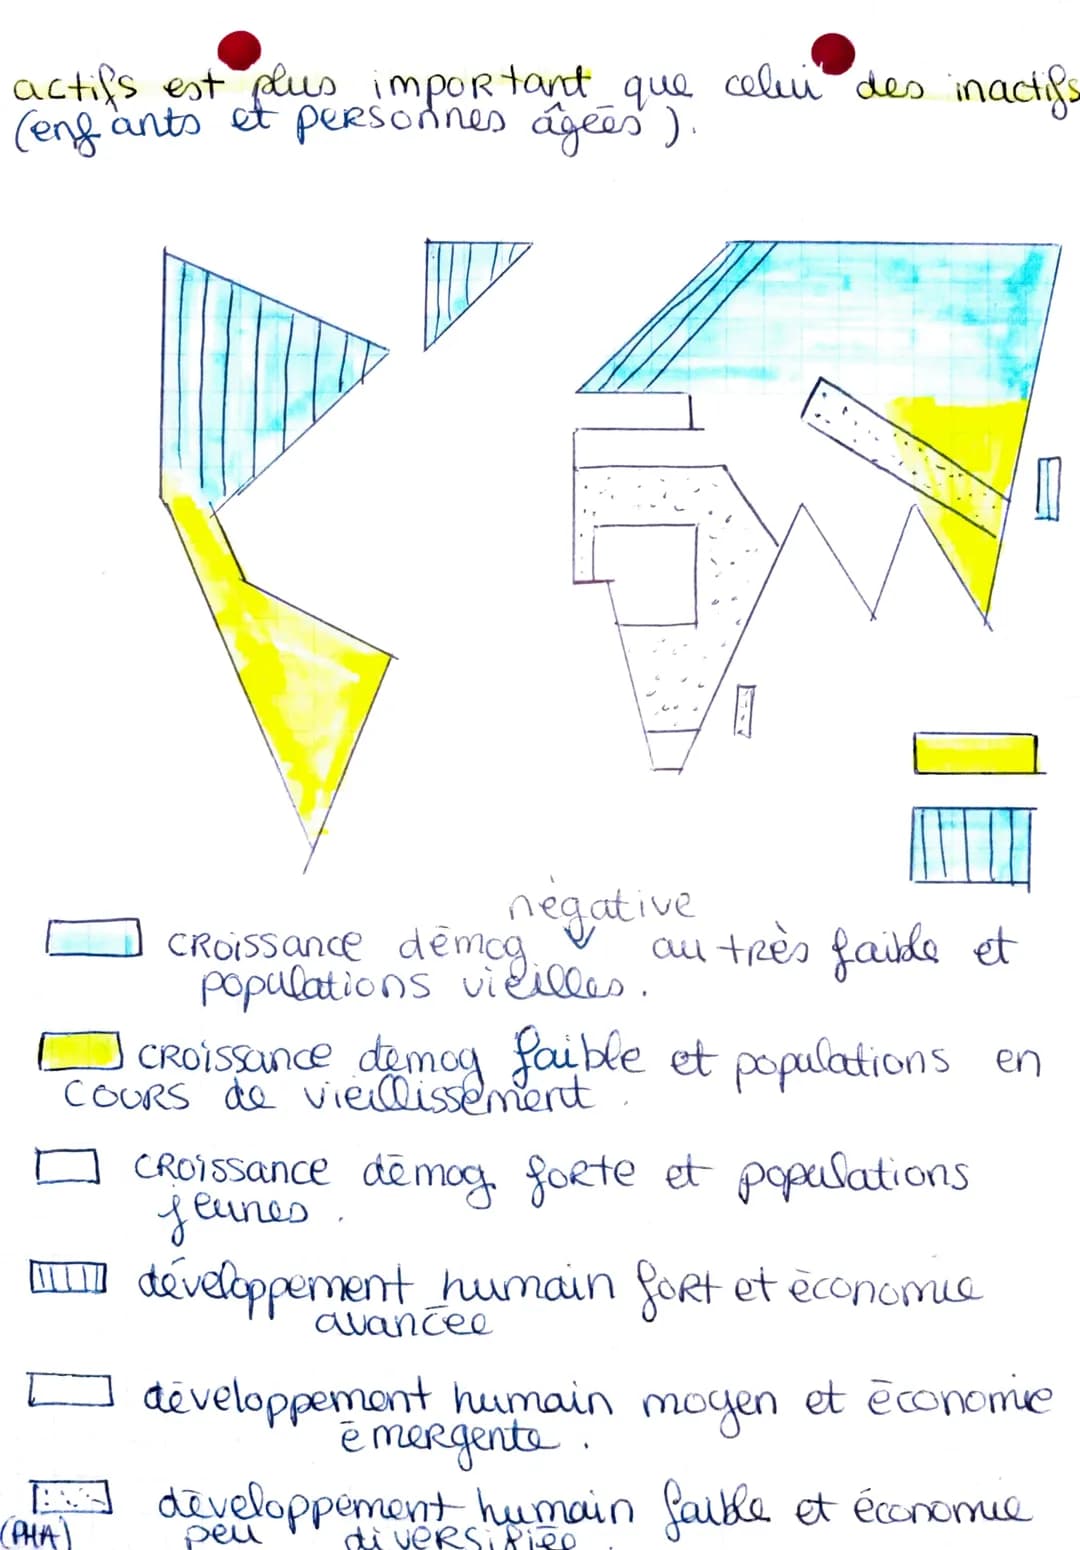 actifs est plus important que celui des inactifs
(enfants et personnes âgées).
négative
croissance démog au très faible et
populations vieilles.
croissance démog faible et populations en
cours de vieillissement.
croissance démog. forte et populations
jeunes.
développement humain fort et économie
avancée
développement humain moyen et économie
émergente.
développement humain faible et économie
(PMA) peu diversifiée